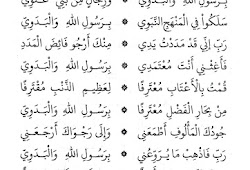 بِرَسُولِ اللهِ وَالْبَدَوِيِّ
سَلَكُوا فِي الْمَنْهَجِ النَّبَوِي ۞ بِرَسُولِ اللهِ وَالْبَدَوِيِّ
رَبِّ إِنِّي قَدْ مَدَدْتُ يَدِي ۞ مِنْكَ أَرْجُو فَائِضَ الْمَدَدِ
فَأَغِثْنِي أَنْتَ مُعْتَمَدِي ۞ بِرَسُولِ اللهِ وَالْبَدَوِيِّ
قُمْتُ بِالْأَعْتَابِ مُعْتَرِفًا ۞ لِعَظِيمِ الذَّنْبِ مُقْتَرِفًا
مِنْ بِحَارِ الْفَضْلِ مُغْتَرِفًا ۞ بِرَسُولِ اللهِ وَالْبَدَوِيِّ
جُودُكَ الْمَأْلُوفُ أَطْمَعَنِي ۞ وَإِلَى رَجْوَاكَ أَرْجَعَنِي
رَبِّ فَاذْهِبْ مَا يُرَوِّعُنِي ۞ بِرَسُولِ اللهِ وَالْبَدَوِيِّ